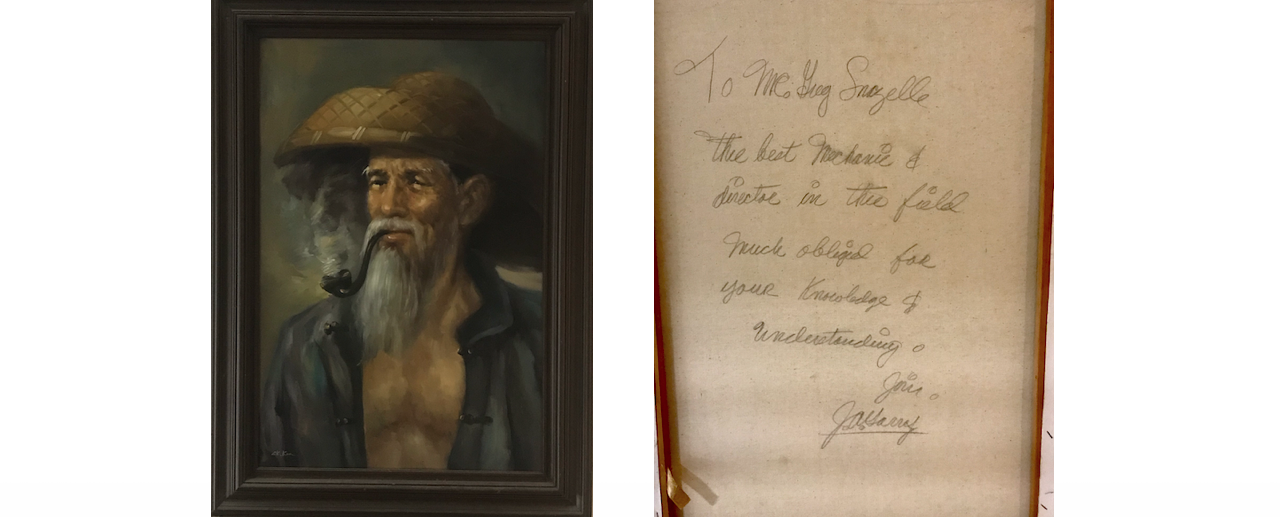 To Mr. Greg Snazelle
The best Mechanic &
director in the field
Much obliged for
your Knowledge &
Understanding.